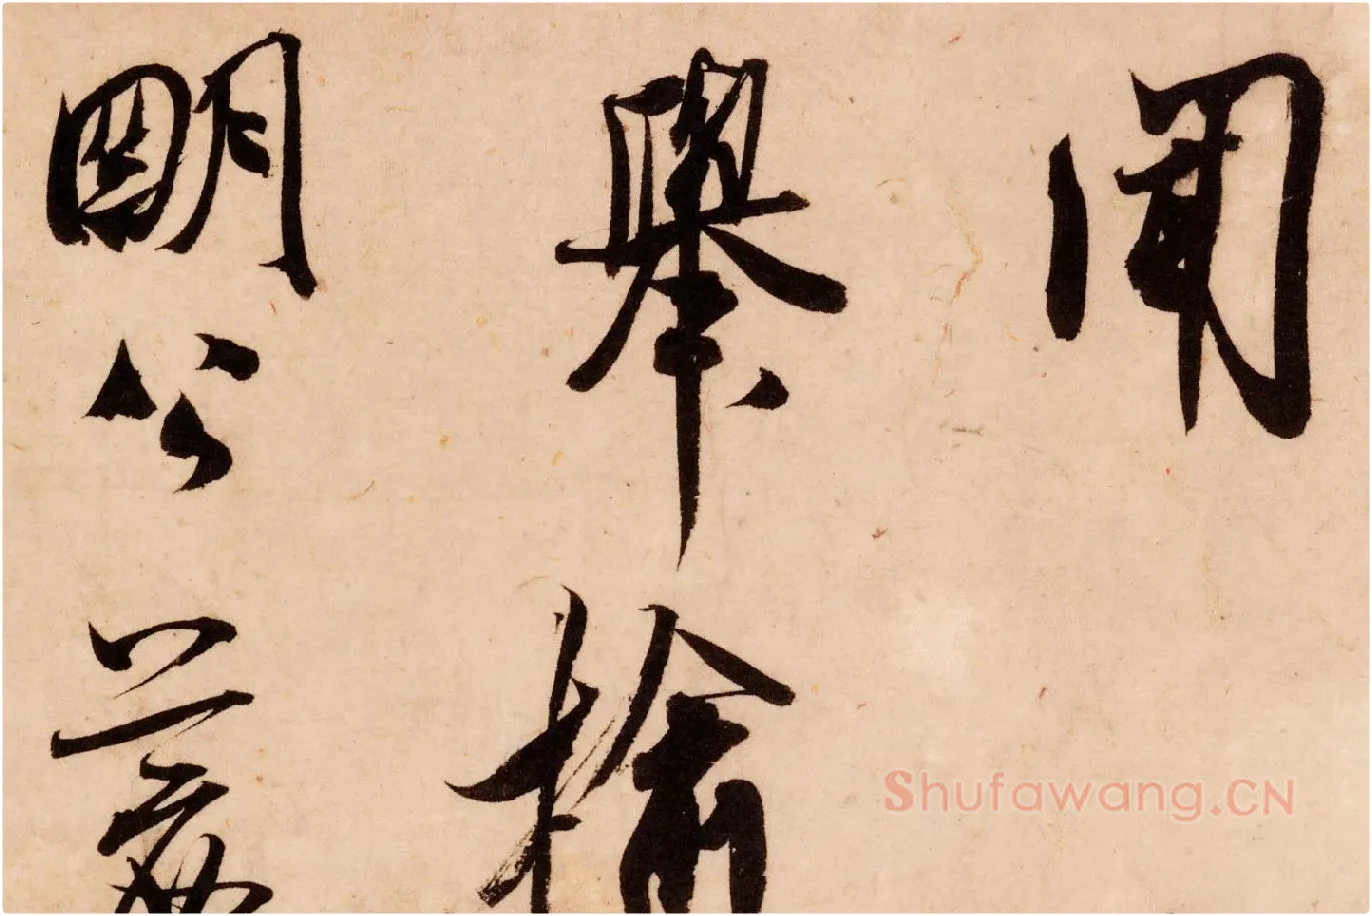 聞
舉榆
明公
Shufawang.CN